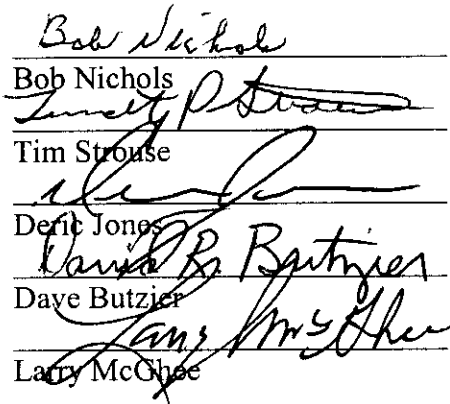 Bob Nichols
Bob Nichols
Timothy P Strouse
Tim Strouse
Deric Jones
David R. Butzier
Dave Butzier
Larry McGhee
Larry McGhee